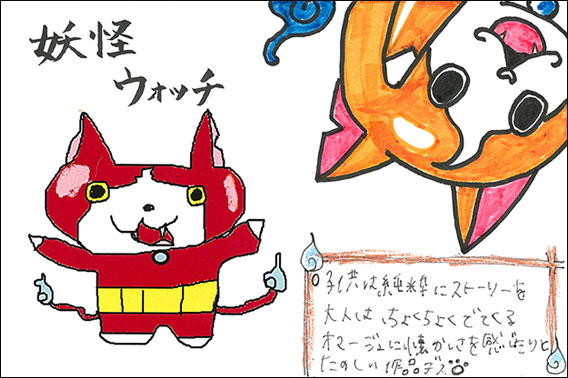 妖怪
ウォッチ
子供は純粋にストーリーを
大人は、ちょくちょくでてくる
オマージュに懐かしさを感じたりと
たのしい作品デス